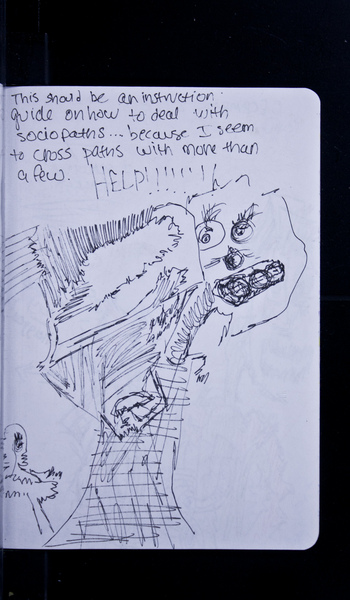 This should be an instruction
guide on how to deal with
sociopaths... because I seem
to cross paths with more than
a few. HELP!!!!!!!